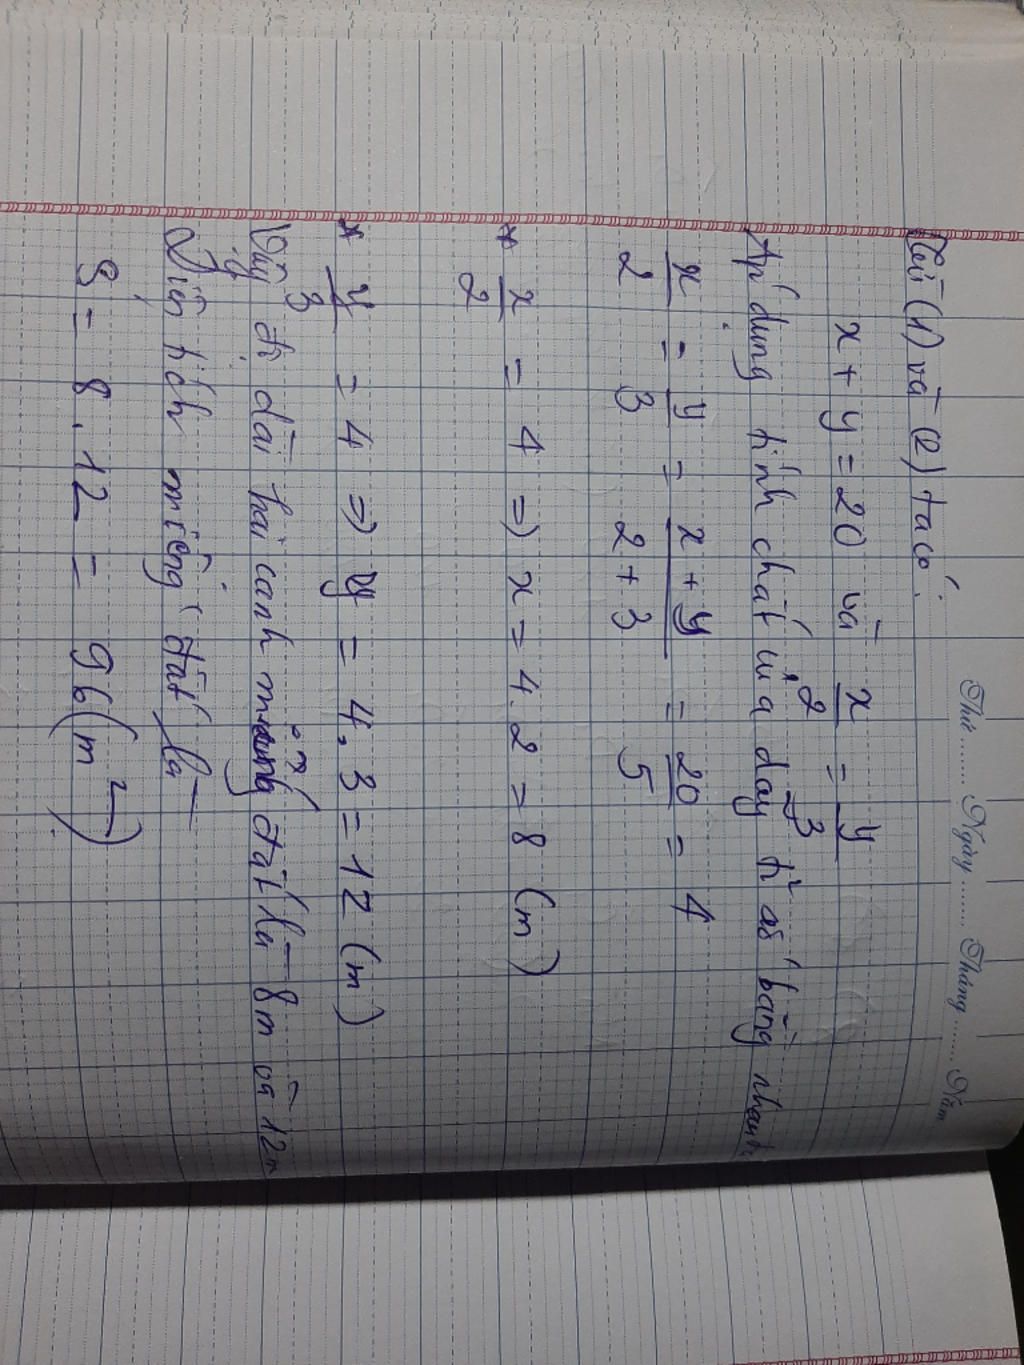 Thứ ........ Ngày ........ Tháng ........ Năm
Từ (1) và (2) ta có:
x + y = 20 và x/2 = y/3
Áp dụng tính chất của dãy tỉ số bằng nhau
x/2 = y/3 = x + y/2 + 3 = 20/5 = 4
* x/2 = 4 => x = 4.2 = 8 (m)
* y/3 = 4 => y = 4.3 = 12 (m)
Vậy độ dài hai cạnh đất là 8m và 12m
Diện tích miếng đất là
S = 8.12 = 96 (m²)